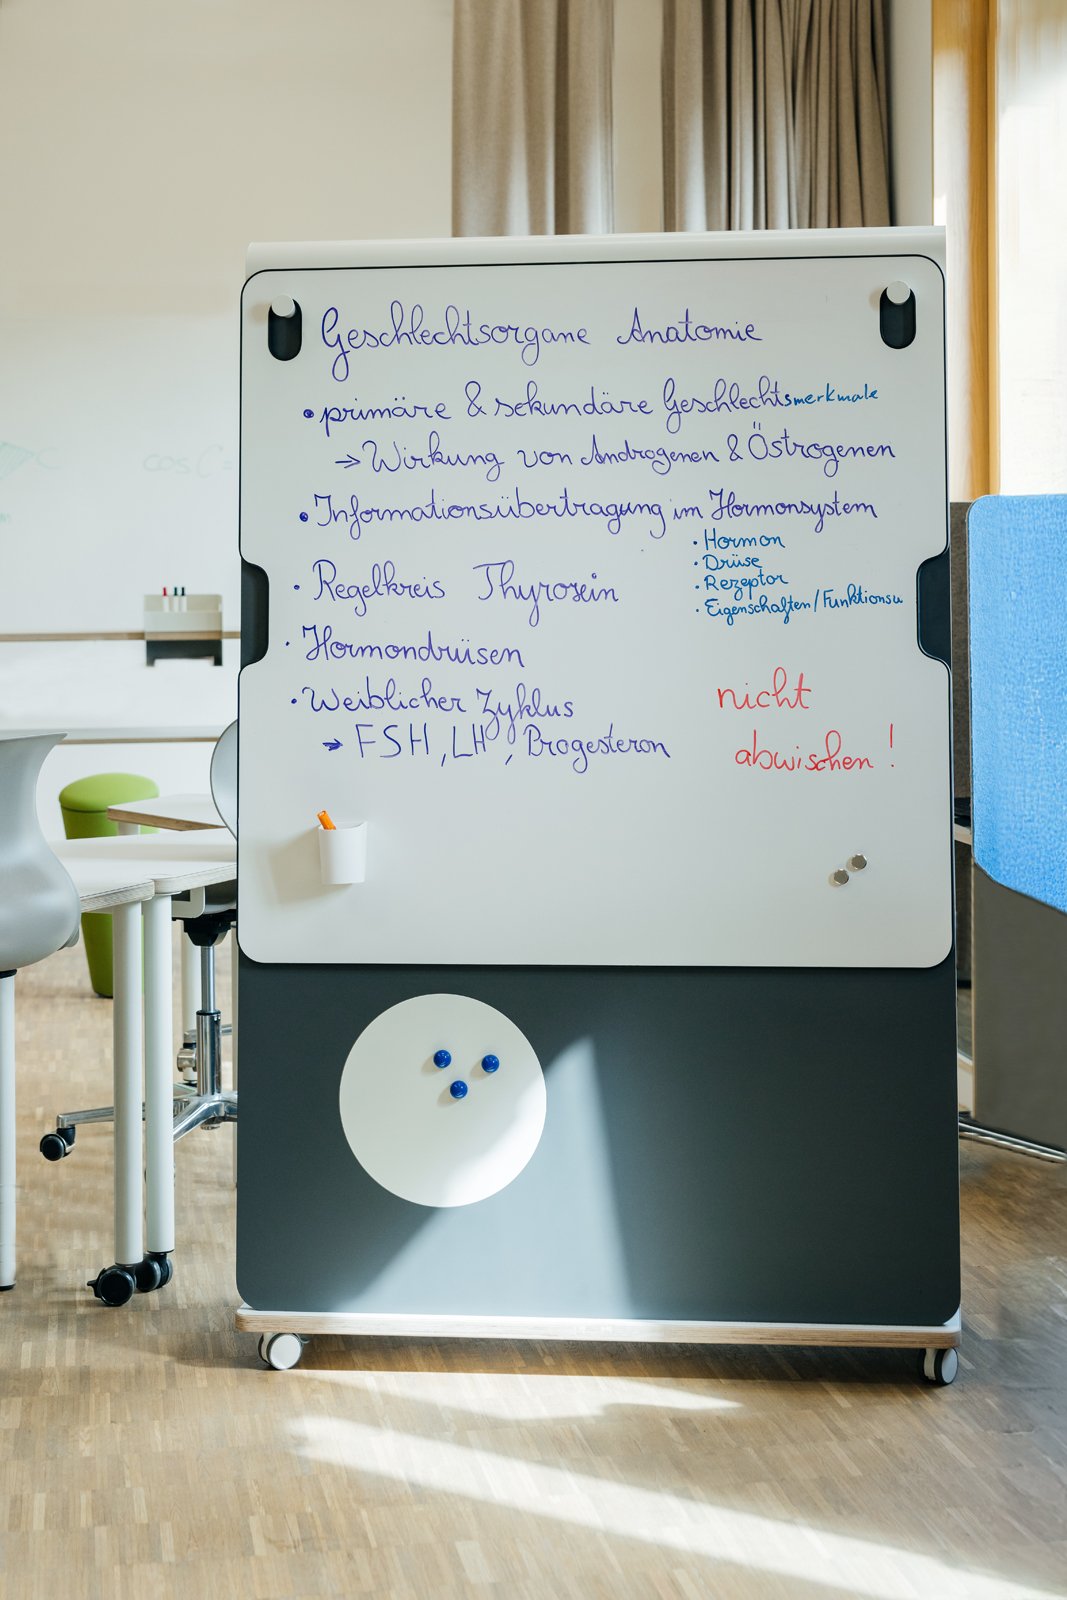 Geschlechtsorgane Anatomie
• primäre & sekundäre Geschlechtsmerkmale
→ Wirkung von Androgenen & Östrogenen
• Informationsübertragung im Hormonsystem
· Hormon
· Drüse
· Rezeptor
· Eigenschaften/Funktionsu
· Regelkreis Thyroxin
· Hormondrüsen
· Weiblicher Zyklus
→ FSH, LH, Progesteron
nicht
abwischen!
cos C =